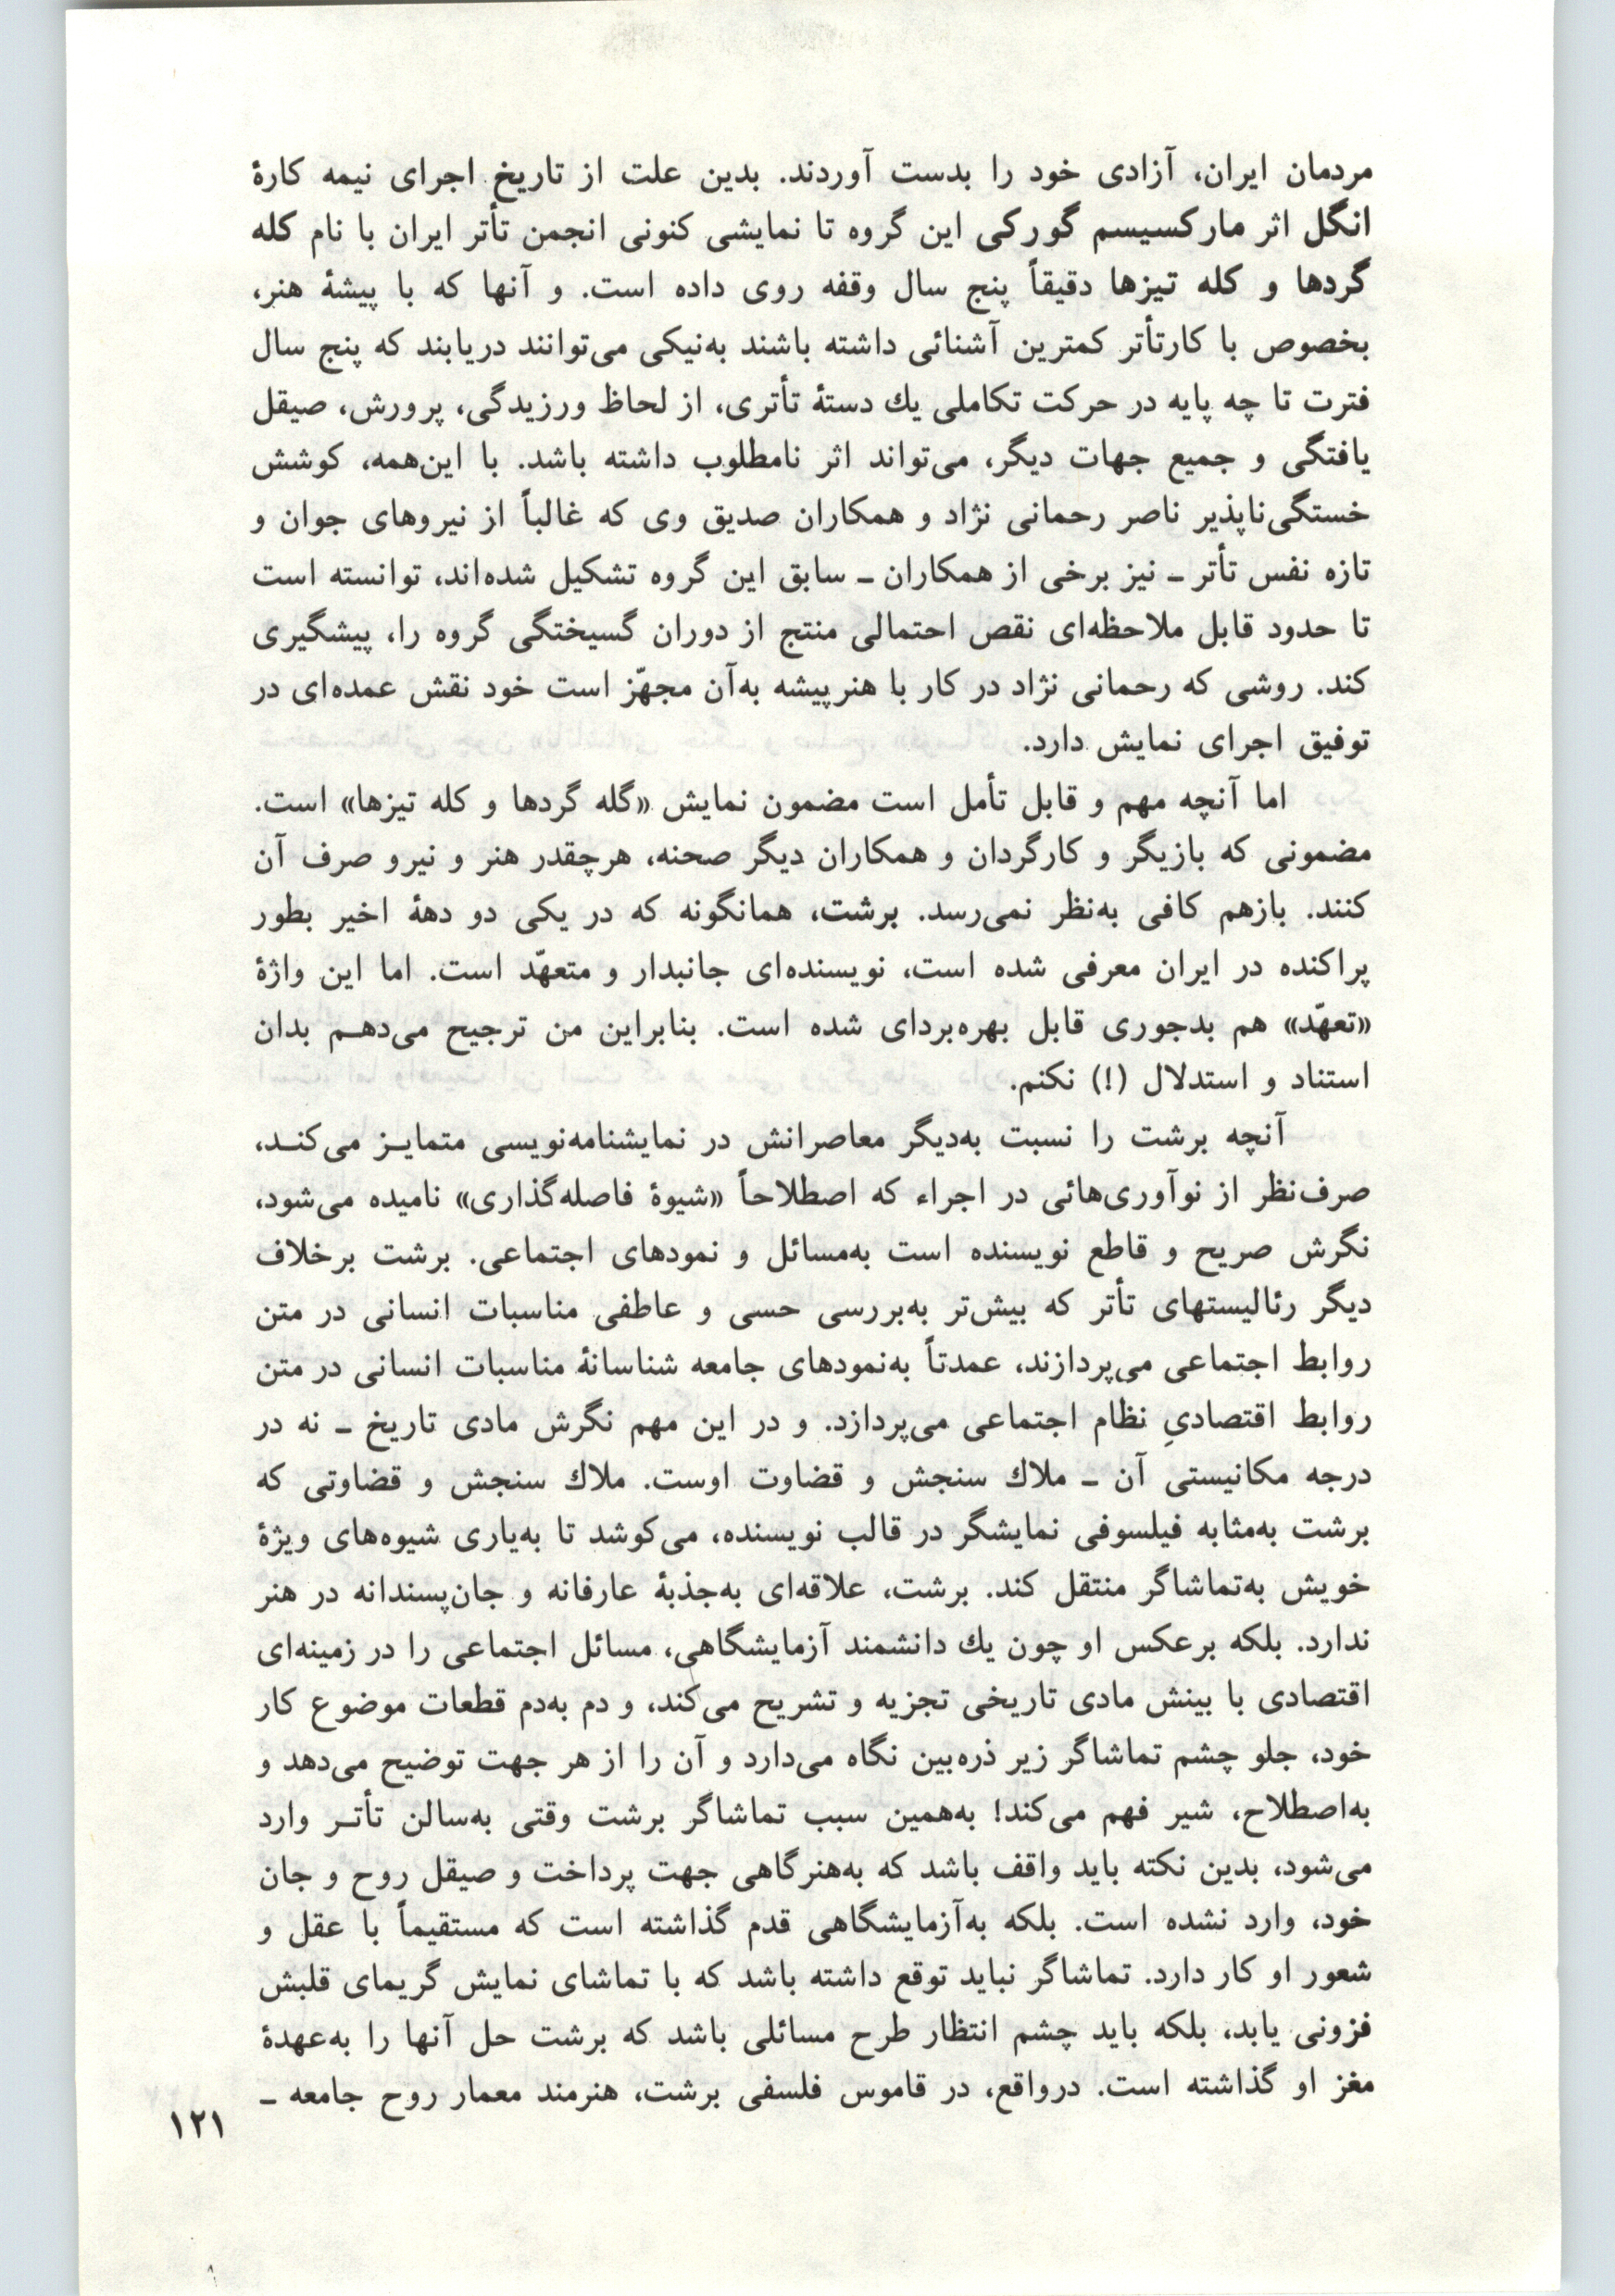 مردمان ایران، آزادی خود را بدست آوردند. بدین علت از تاریخ اجرای نیمه کارهٔ
انگل اثر مارکسیسم گورکی این گروه تا نمایشی کنونی انجمن تأتر ایران با نام کله
گردها و کله تیزها دقیقاً پنج سال وقفه روی داده است. و آنها که با پیشهٔ هنر،
بخصوص با کارتأتر کمترین آشنائی داشته باشند به‌نیکی می‌توانند دریابند که پنج سال
فترت تا چه پایه در حرکت تکاملی یك دستهٔ تأتری، از لحاظ ورزیدگی، پرورش، صیقل
یافتگی و جمیع جهات دیگر، می‌تواند اثر نامطلوب داشته باشد. با این‌همه، کوشش
خستگی‌ناپذیر ناصر رحمانی نژاد و همکاران صدیق وی که غالباً از نیروهای جوان و
تازه نفس تأتر ـ نیز برخی از همکاران ـ سابق این گروه تشکیل شده‌اند، توانسته است
تا حدود قابل ملاحظه‌ای نقص احتمالی منتج از دوران گسیختگی گروه را، پیشگیری
کند. روشی که رحمانی نژاد در کار با هنرپیشه به‌آن مجهّز است خود نقش عمده‌ای در
توفیق اجرای نمایش دارد.
اما آنچه مهم و قابل تأمل است مضمون نمایش «گله گردها و کله تیزها» است.
مضمونی که بازیگر و کارگردان و همکاران دیگر صحنه، هرچقدر هنر و نیرو صرف آن
کنند. بازهم کافی به‌نظر نمی‌رسد. برشت، همانگونه که در یکی دو دههٔ اخیر بطور
پراکنده در ایران معرفی شده است، نویسنده‌ای جانبدار و متعهّد است. اما این واژهٔ
«تعهّد» هم بدجوری قابل بهره‌بردای شده است. بنابراین من ترجیح می‌دهـم بدان
استناد و استدلال (!) نکنم.
آنچه برشت را نسبت به‌دیگر معاصرانش در نمایشنامه‌نویسی متمایـز می‌کنـد،
صرف‌نظر از نوآوری‌هائی در اجراء که اصطلاحاً «شیوهٔ فاصله‌گذاری» نامیده می‌شود،
نگرش صریح و قاطع نویسنده است به‌مسائل و نمودهای اجتماعی. برشت برخلاف
دیگر رئالیستهای تأتر که بیش‌تر به‌بررسی حسی و عاطفی مناسبات انسانی در متن
روابط اجتماعی می‌پردازند، عمدتاً به‌نمودهای جامعه شناسانهٔ مناسبات انسانی در متن
روابط اقتصادیِ نظام اجتماعی می‌پردازد. و در این مهم نگرش مادی تاریخ ـ نه در
درجه مکانیستی آن ـ ملاك سنجش و قضاوت اوست. ملاك سنجش و قضاوتی که
برشت به‌مثابه فیلسوفی نمایشگر در قالب نویسنده، می‌کوشد تا به‌یاری شیوه‌های ویژهٔ
خویش به‌تماشاگر منتقل کند. برشت، علاقه‌ای به‌جذبهٔ عارفانه و جان‌پسندانه در هنر
ندارد. بلکه برعکس او چون یك دانشمند آزمایشگاهی، مسائل اجتماعی را در زمینه‌ای
اقتصادی با بینش مادی تاریخی تجزیه و تشریح می‌کند، و دم به‌دم قطعات موضوع کار
خود، جلو چشم تماشاگر زیر ذره‌بین نگاه می‌دارد و آن را از هر جهت توضیح می‌دهد و
به‌اصطلاح، شیر فهم می‌کند! به‌همین سبب تماشاگر برشت وقتی به‌سالن تأتـر وارد
می‌شود، بدین نکته باید واقف باشد که به‌هنرگاهی جهت پرداخت و صیقل روح و جان
خود، وارد نشده است. بلکه به‌آزمایشگاهی قدم گذاشته است که مستقیماً با عقل و
شعور او کار دارد. تماشاگر نباید توقع داشته باشد که با تماشای نمایش گریمای قلبش
فزونی یابد، بلکه باید چشم انتظار طرح مسائلی باشد که برشت حل آنها را به‌عهدهٔ
مغز او گذاشته است. درواقع، در قاموس فلسفی برشت، هنرمند معمار روح جامعه ـ
۱۲۱